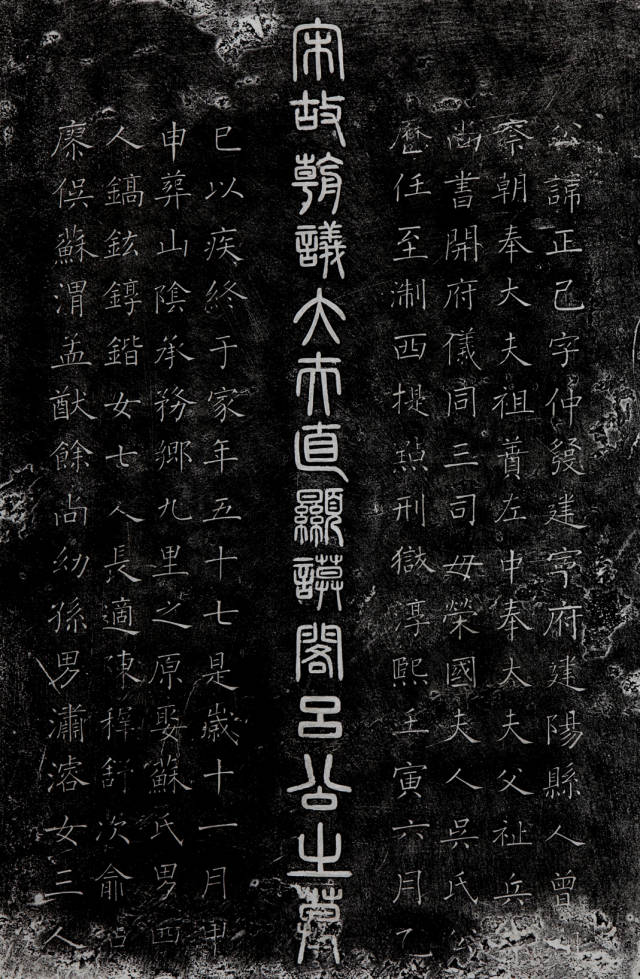 公諱正己字仲發建寧府建陽縣人曾
察朝奉大夫祖蕡左中奉大夫父祉兵
尚書開府儀同三司母榮國夫人吳氏公
歷任至淛西提㸃刑獄淳熙壬寅六月乙
宋故朝議大夫直顯謨閣呂公之墓
巳以疾終于家年五十七是歲十一月甲
申葬山陰承務鄉九里之原娶蘇氏男四
人鎬鉉錞鍇女七人長適陳樨舒次俞
廩俁蘇渭孟猷餘尚幼孫男潚濬女三人